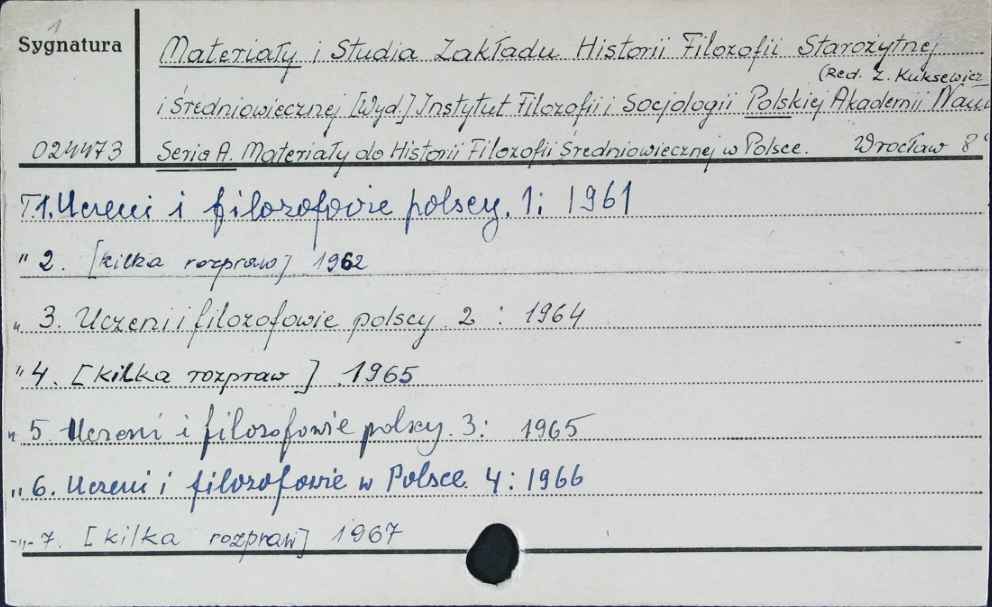 1
Sygnatura
Materiały i Studia Zakładu Historii Filozofii Starożytnej
(Red. Z. Kuksewicz
i Średniowiecznej [Wyd.] Instytut Filozofii i Socjologii Polskiej Akademii Nauk
024473
Seria A. Materiały do Historii Filozofii Średniowiecznej w Polsce. Wrocław 8°
T.1. Uczeni i filozofowie polscy. 1; 1961
" 2. [kilka rozpraw] 1962
" 3. Uczeni i filozofowie polscy. 2 : 1964
" 4. [kilka rozpraw] 1965
" 5 Uczeni i filozofowie polscy. 3: 1965
" 6. Uczeni i filozofowie w Polsce. 4: 1966
-"- 7. [kilka rozpraw] 1967